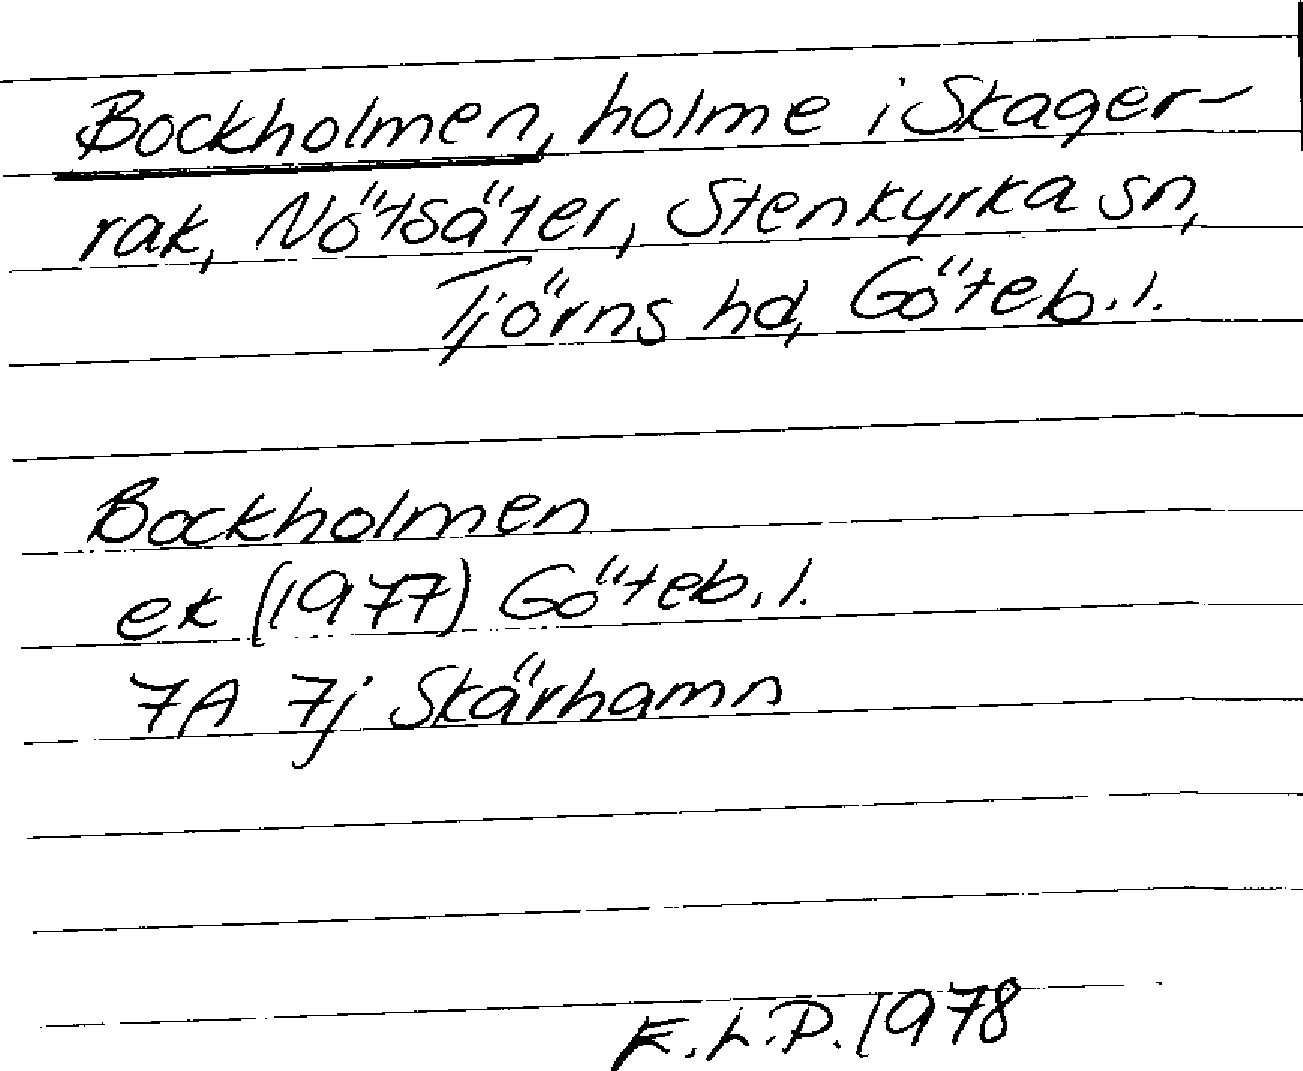 Bockholmen, holme i Skager-
rak, Nötsäter, Stenkyrka sn,
Tjörns hd, Göteb. l.
Bockholmen
ek (1977) Göteb. l.
7A 7j Skärhamn
E.L.P. 1978